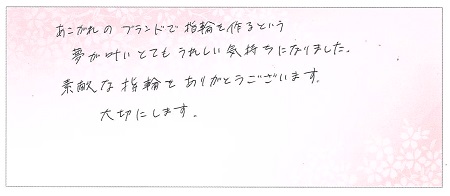 あこがれの ブランドで 指輪を作るという
夢が叶い とても うれしい 気持ちになりました.
素敵な 指輪を ありがとうございます.
大切にします.